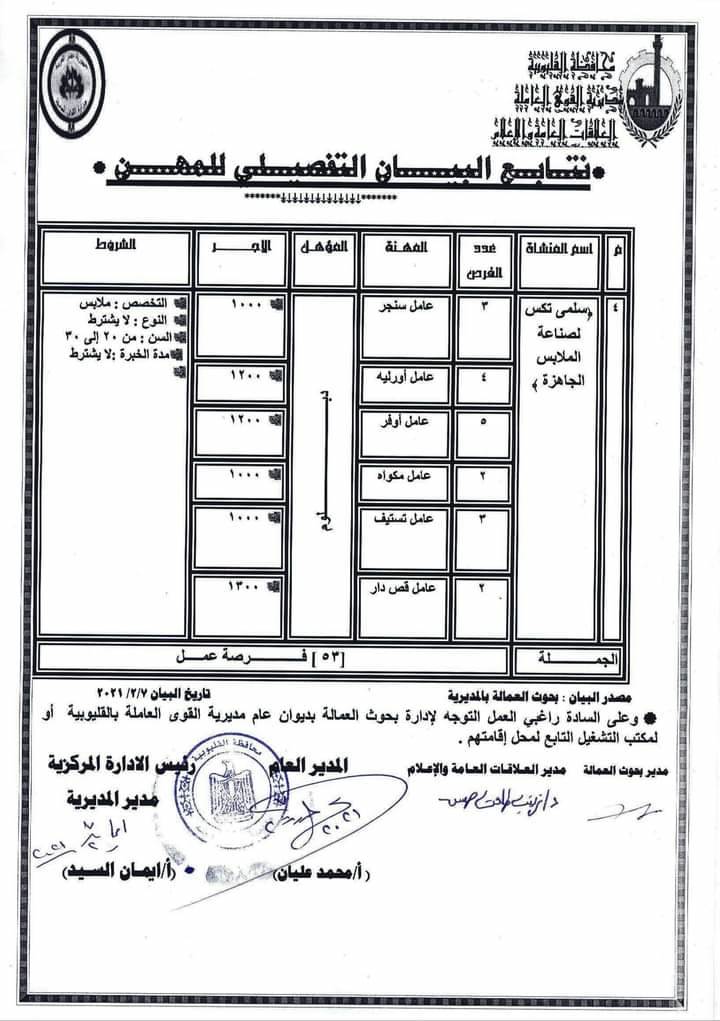 محافظة القليوبية
مديرية القوى العاملة
العلاقات العامة والاعلام
*نتابع البيان التفصيلي للمهن*
م
اسم المنشاة
عدد الفرص
المهنة
المؤهل
الاجر
الشروط
٤
﴿سلمى تكس
لصناعة
الملابس
الجاهزة﴾
٣
عامل سنجر
١٠٠٠
٤
عامل أورليه
١٢٠٠
٥
عامل أوفر
١٢٠٠
٢
عامل مكواه
١٠٠٠
٣
عامل تستيف
١٠٠٠
٢
عامل قص دار
١٣٠٠
دبلوم
التخصص : ملابس
النوع : لا يشترط
السن : من ٢٠ إلى ٣٠
مدة الخبرة :لا يشترط
الجملة
[٥٣] فرصة عمل
مصدر البيان : بحوث العمالة بالمديرية
تاريخ البيان ٢/٧/ ٢٠٢١
وعلى السادة راغبي العمل التوجه لإدارة بحوث العمالة بديوان عام مديرية القوى العاملة بالقليوبية أو
لمكتب التشغيل التابع لمحل إقامتهم .
مدير بحوث العمالة
مدير العلاقات العامة والإعلام
المدير العام
رئيس الادارة المركزية
مدير المديرية
محافظة القليوبية
(أ/محمد عليان)
(أ/ايمان السيد)